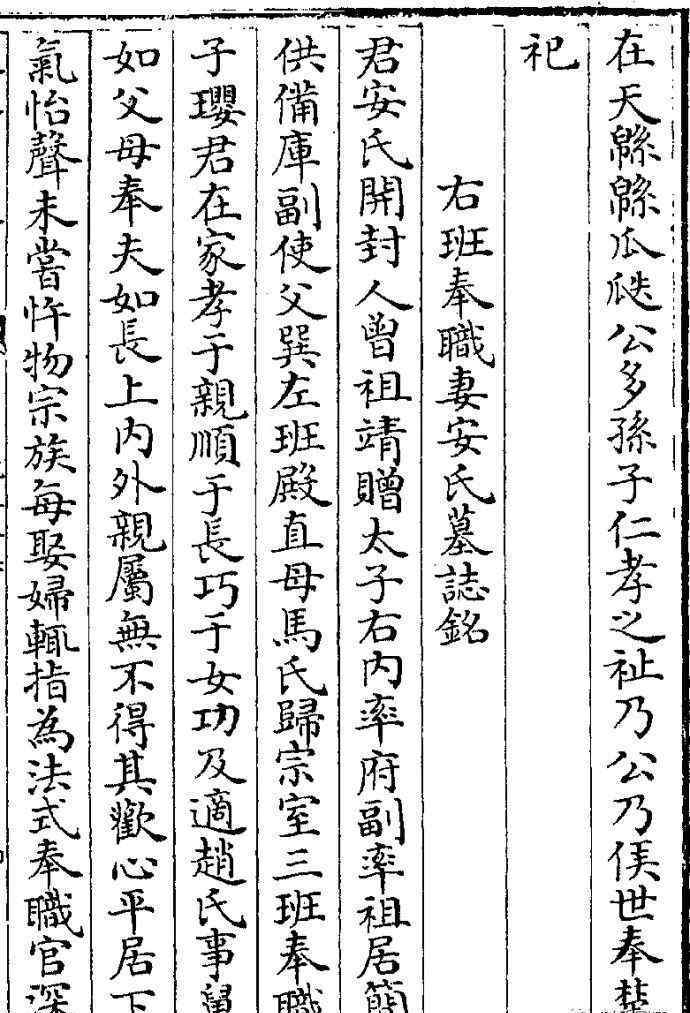 在天緜緜瓜瓞公多孫子仁孝之祉乃公乃侯世奉楚
祀
右班奉職妻安氏墓誌銘
君安氏開封人曾祖靖贈太子右內率府副率祖居簡
供備庫副使父巽左班殿直母馬氏歸宗室三班奉職
子瓔君在家孝于親順于長巧于女功及適趙氏事舅
如父母奉夫如長上內外親屬無不得其歡心平居下
氣怡聲未嘗忤物宗族每娶婦輒指為法式奉職官深